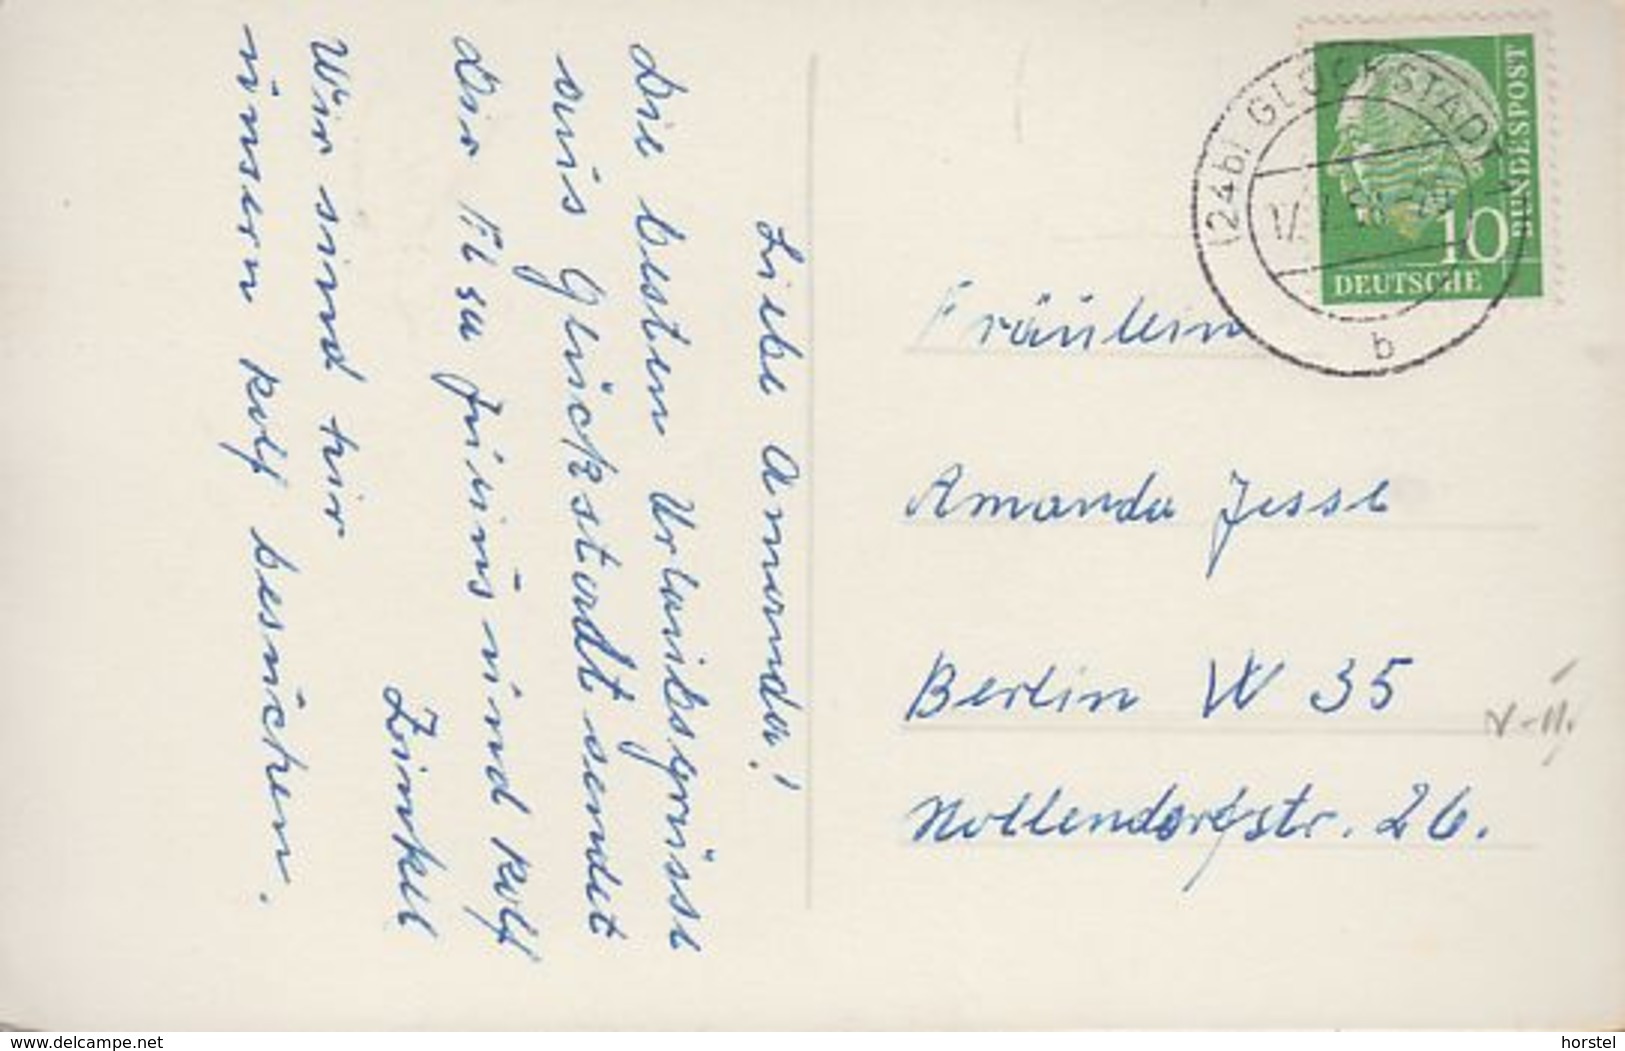 Liebe Amanda!
Die besten Urlaubsgrüsse
aus Glückstadt sendet
Dir Elsa Heins und Rolf
Zinkel
Wir sind hir
unsern Rolf besuchen.
(24b) GLÜCKSTADT
b
10
DEUTSCHE
BUNDESPOST
Fräulein
Amanda Jesse
Berlin W 35
Nollendorfstr. 26.
www.delcampe.net
horstel